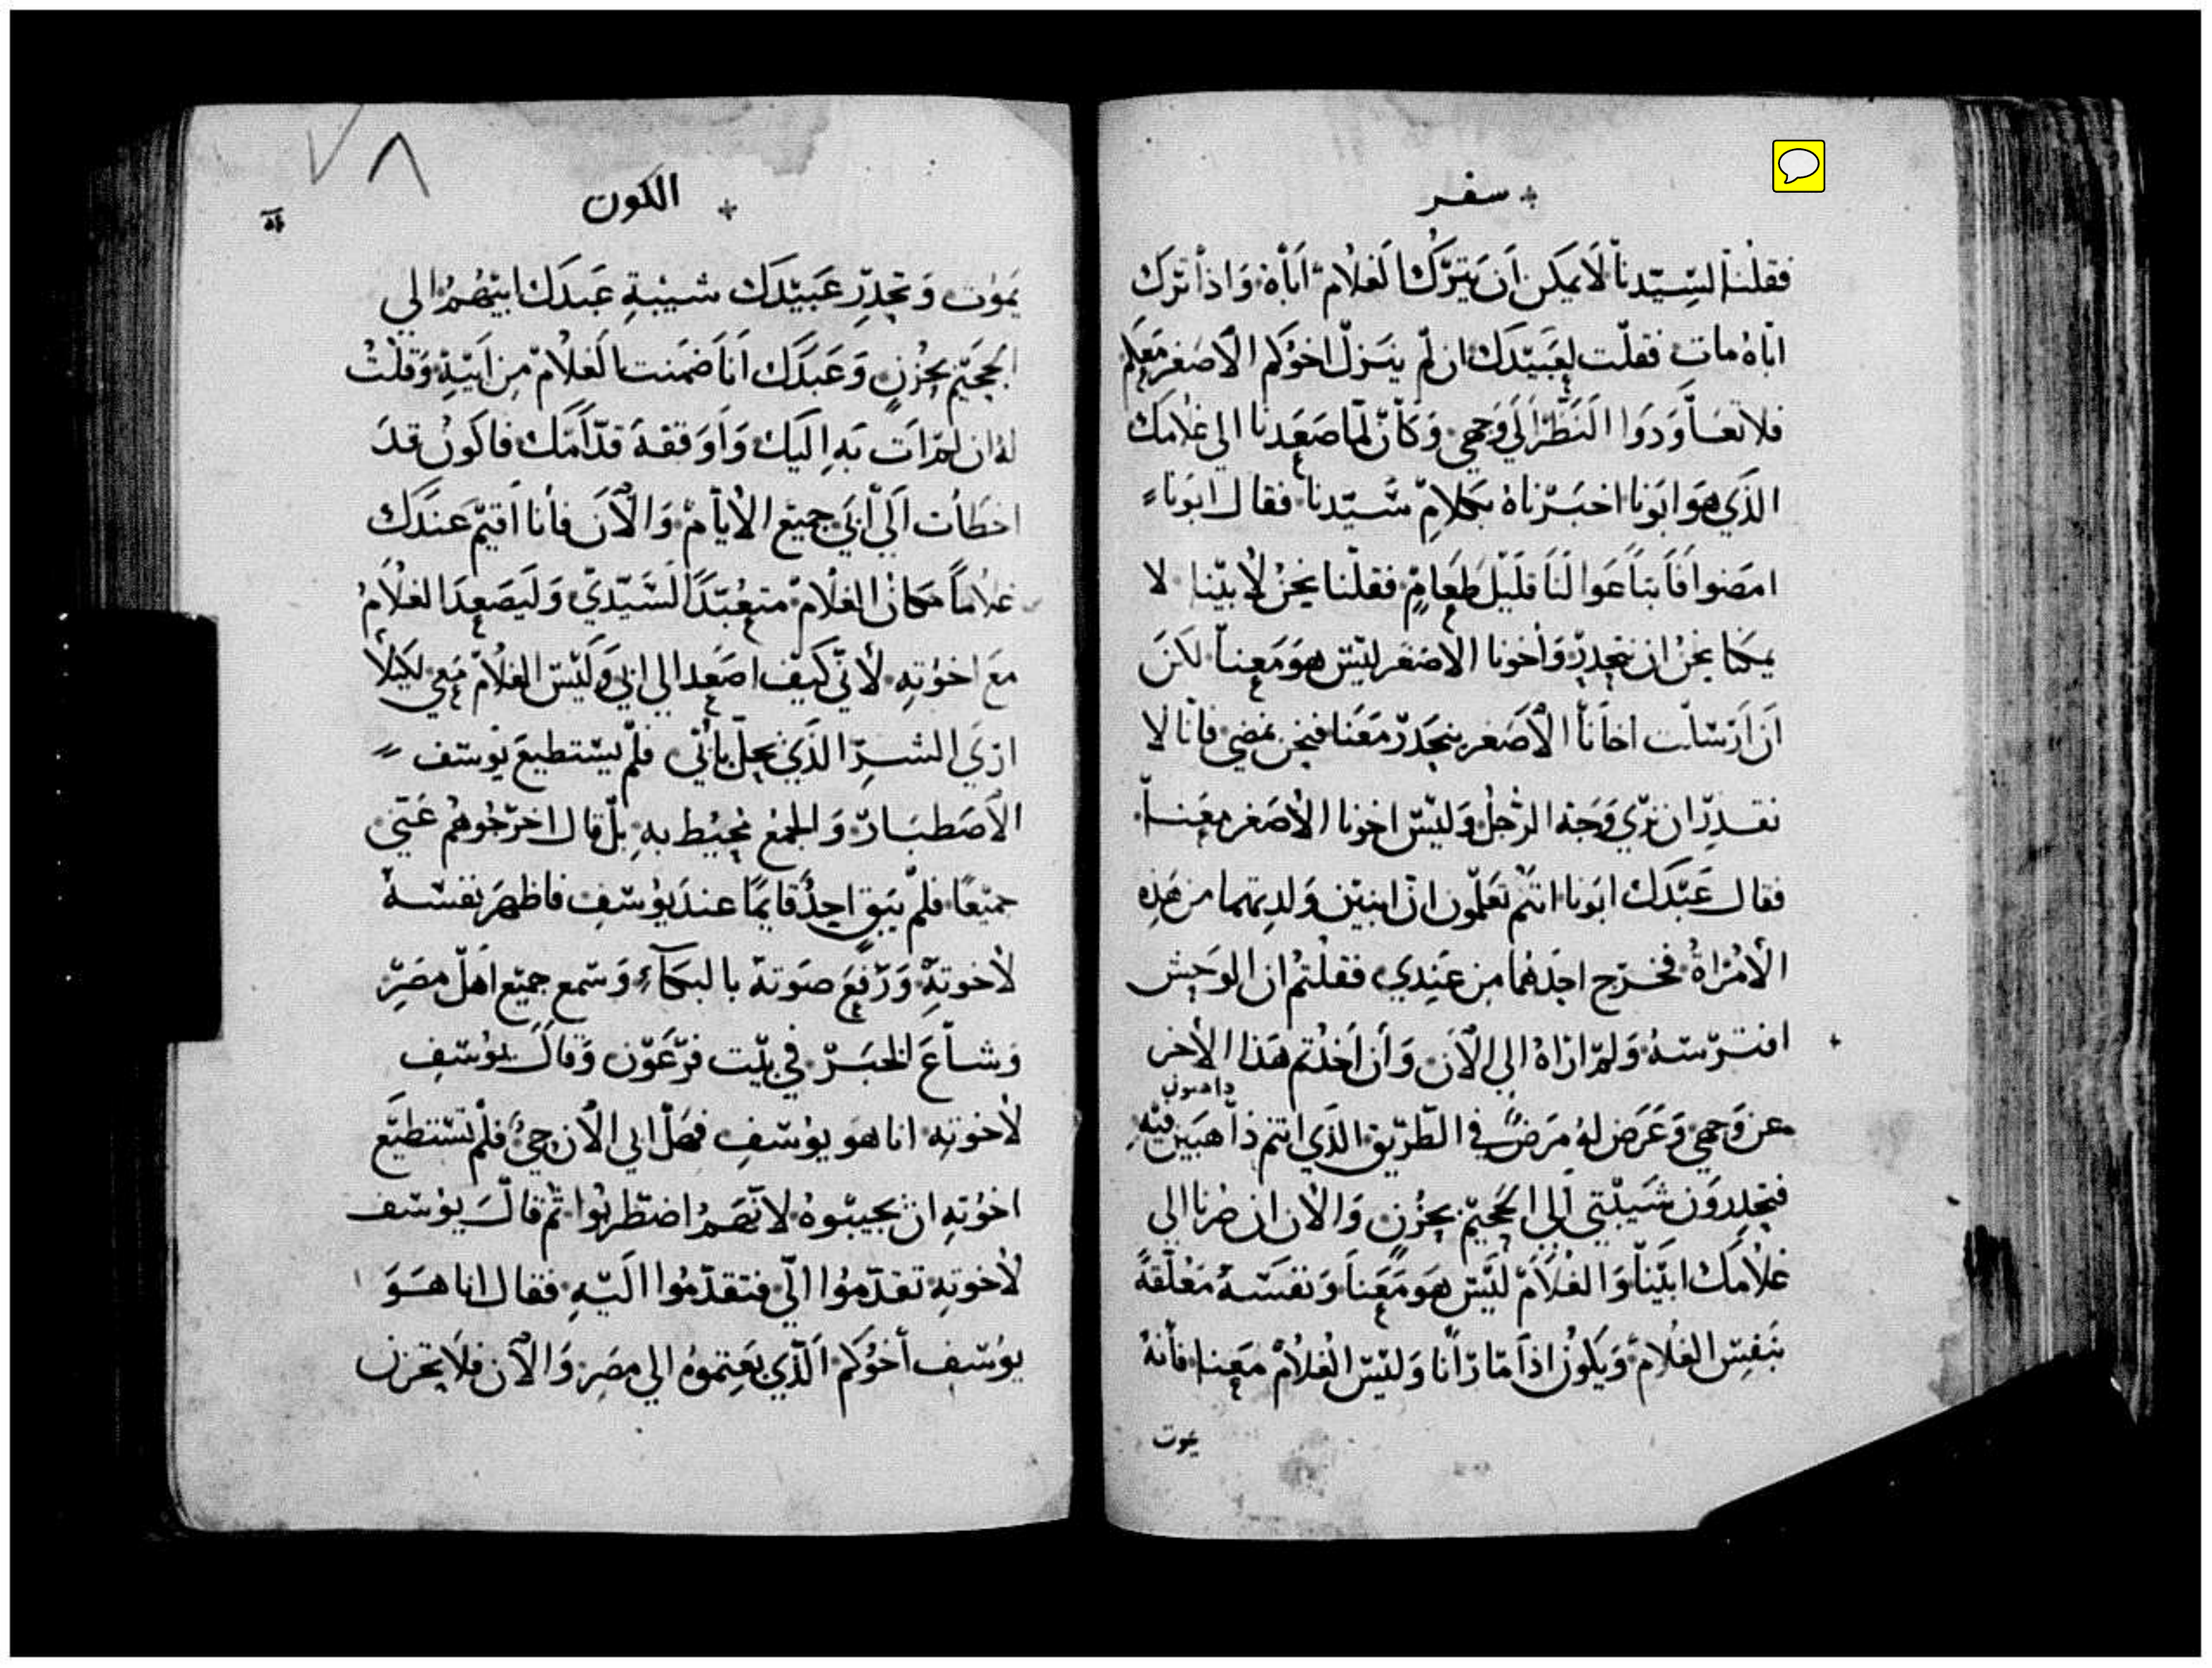 سفر
فقلنا لسيّدنا لا يمكن ان يترك الغلام اباه واذا ترك
اباه مات فقلت لعبيدك ان لم ينزل اخوكم الاصغر معكم
فلا تعاودوا النظر الي وجهي وكان لما صعدنا الي غلامك
الذي هو ابونا اخبرناه بكلام سيّدنا فقال ابونا
امضوا فابتاعوا لنا قليل طعام فقلنا نحن لابينا لا
يمكنا نحن ان ننحدر واخونا الاصغر ليس هو معنا لكن
ان ارسلت اخانا الاصغر ينحدر معنا فنحن نمضي فانا لا
نقدر ان نري وجه الرجل وليس اخونا الاصغر معنا
فقال عبدك ابونا انتم تعلمون ان ابنين ولدتهما من هذه
الامراة فخرج احدهما من عندي فقلتم ان الوحش
افترسه ولم اراه الي الان وان اخذتم هذا الاخر
ذاهبون
عن وجهي وعرض له مرض في الطريق الذي انتم ذاهبين فيه
فتحدرون شيبتي الي الجحيم بحزن والان ان صرنا الي
غلامك ابينا والغلام ليس هو معنا ونفسه معلقة
بنفس الغلام ويكون اذا ما رانا وليس الغلام معنا فانه
يموت
٧٨
الكون
يموت وتحدر عبيدك شيبة عبدك ابيهم الي
الجحيم بحزن وعبدك انا ضمنت الغلام من ابيه وقلت
له ان لم ات به اليك واوقفه قدّامك فاكون قد
اخطات الي ابي جميع الايام والان فانا اقيم عندك
غلاماً مكان الغلام متعبّداً لسيّدي وليصعد الغلام
مع اخوته لاني كيف اصعد الي ابي وليس الغلام معي لكيلا
اري الشر الذي يحل بابي فلم يستطيع يوسف
الاصطبار والجمع محيط به بل قال اخرجوهم عني
جميعًا فلم يبق احدٌ قايمًا عند يوسف فاظهر نفسه
لاخوته ورفع صوته بالبكاء وسمع جميع اهل مصر
وشاع الخبر في بيت فرعون وقال يوسف
لاخوته انا هو يوسف فهل ابي الان حي فلم تستطيع
اخوته ان يجيبوه لانهم اضطربوا ثم قال يوسف
لاخوته تقدّموا الّي فتقدّموا اليه فقال انا هو
يوسف اخوكم الذي بعتموه الي مصر والان فلا تحزن